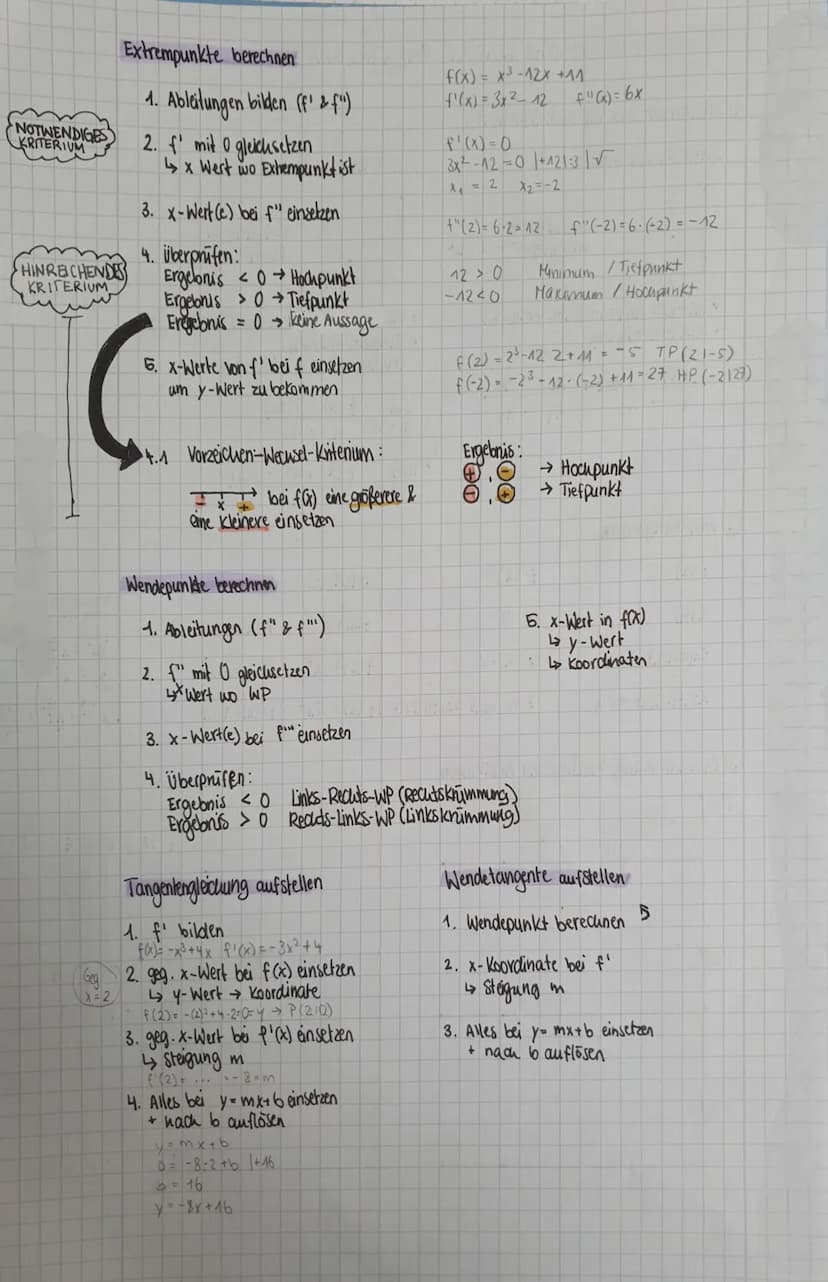 Extrempunkte berechnen
f(x) = x³ -12x +11
1. Ableitungen bilden (f' & f'')
f'(x) = 3x² - 12 f''(x) = 6x
NOTWENDIGES
KRITERIUM
2. f' mit 0 gleichsetzen
↳ x Wert wo Extrempunkt ist
f'(x) = 0
3x² -12 = 0 |+12|:3|√
x₁ = 2 x₂ = -2
3. x-Wert(e) bei f'' einsetzen
f''(2) = 6·2 = 12 f''(-2) = 6·(-2) = -12
HINREICHENDES
KRITERIUM
4. Überprüfen:
Ergebnis < 0 → Hochpunkt
Ergebnis > 0 → Tiefpunkt
Ergebnis = 0 → keine Aussage
12 > 0 Minimum / Tiefpunkt
-12 < 0 Maximum / Hochpunkt
5. x-Werte von f' bei f einsetzen
um y-Wert zu bekommen
f(2) = 2³ -12 2 + 11 = -5 TP (2|-5)
f(-2) = -2³ - 12 · (-2) + 11 = 27 HP (-2|27)
4.1 Vorzeichen-Wechsel-Kriterium:
- x +
bei f(x) eine größere &
eine kleinere einsetzen
Ergebnis:
+ , - → Hochpunkt
- , + → Tiefpunkt
Wendepunkte berechnen
1. Ableitungen (f'' & f''')
2. f'' mit 0 gleichsetzen
↳ x Wert wo WP
3. x-Wert(e) bei f''' einsetzen
4. Überprüfen:
Ergebnis < 0 Links-Rechts-WP (Rechtskrümmung)
Ergebnis > 0 Rechts-Links-WP (Linkskrümmung)
5. x-Wert in f(x)
↳ y-Wert
↳ Koordinaten
Tangentengleichung aufstellen
1. f' bilden
f(x) = -x³+4x f'(x) = -3x²+4
Geg
x = 2
2. geg. x-Wert bei f(x) einsetzen
↳ y-Wert → Koordinate
f(2) = -(2)³+4·2=0=y → P(2|0)
3. geg. x-Wert bei f'(x) einsetzen
↳ Steigung m
f'(2) = ... = -8 = m
4. Alles bei y = mx+b einsetzen
+ nach b auflösen
y = mx + b
0 = -8·2 + b |+16
b = 16
y = -8x + 16
Wendetangente aufstellen
1. Wendepunkt berechnen
2. x-Koordinate bei f'
↳ Steigung m
3. Alles bei y = mx+b einsetzen
+ nach b auflösen